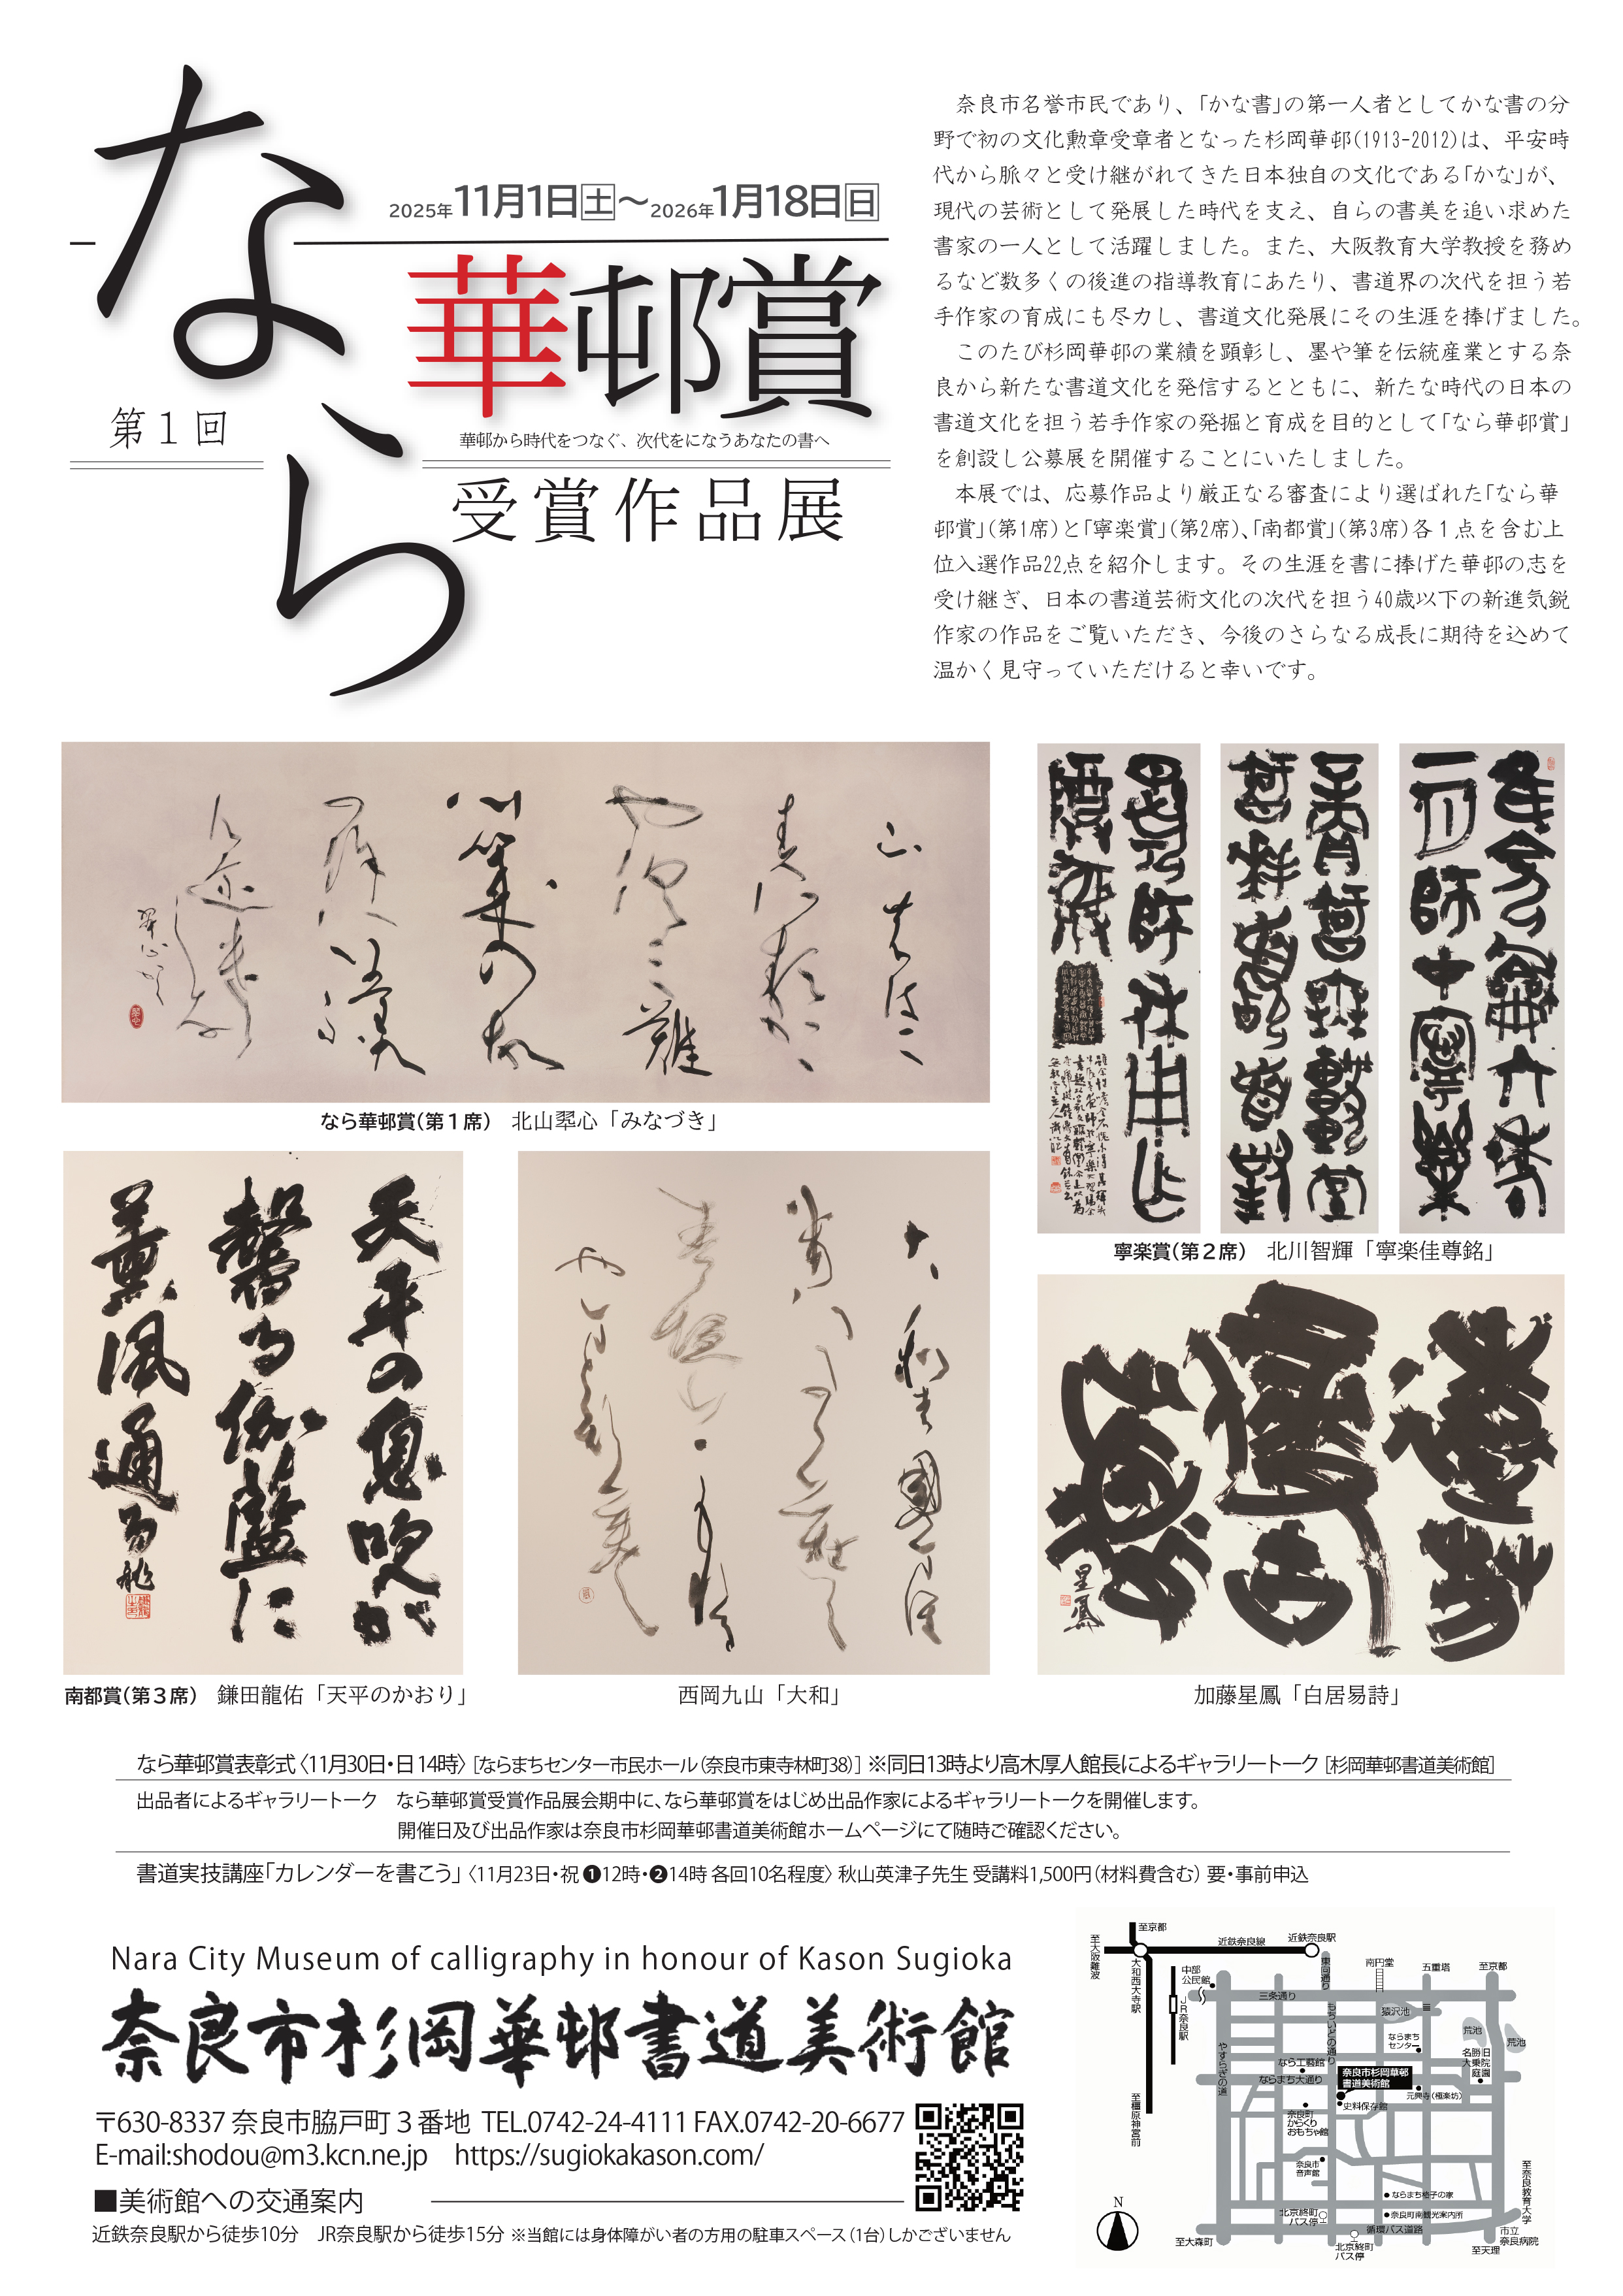 2025年11月1日土〜2026年1月18日日
第1回
なら
華邨賞
華邨から時代をつなぐ、次代をになうあなたの書へ
受賞作品展
奈良市名誉市民であり、「かな書」の第一人者としてかな書の分
野で初の文化勲章受章者となった杉岡華邨(1913-2012)は、平安時
代から脈々と受け継がれてきた日本独自の文化である「かな」が、
現代の芸術として発展した時代を支え、自らの書美を追い求めた
書家の一人として活躍しました。また、大阪教育大学教授を務め
るなど数多くの後進の指導教育にあたり、書道界の次代を担う若
手作家の育成にも尽力し、書道文化発展にその生涯を捧げました。
このたび杉岡華邨の業績を顕彰し、墨や筆を伝統産業とする奈
良から新たな書道文化を発信するとともに、新たな時代の日本の
書道文化を担う若手作家の発掘と育成を目的として「なら華邨賞」
を創設し公募展を開催することにいたしました。
本展では、応募作品より厳正なる審査により選ばれた「なら華
邨賞」(第1席)と「寧楽賞」(第2席)、「南都賞」(第3席)各1点を含む上
位入選作品22点を紹介します。その生涯を書に捧げた華邨の志を
受け継ぎ、日本の書道芸術文化の次代を担う40歳以下の新進気鋭
作家の作品をご覧いただき、今後のさらなる成長に期待を込めて
温かく見守っていただけると幸いです。
なら華邨賞(第1席) 北山翆心「みなづき」
寧楽賞(第2席) 北川智輝「寧楽佳尊銘」
天平の息吹が
馨る伽藍に
薫風通る
南都賞(第3席) 鎌田龍佑「天平のかおり」
西岡九山「大和」
星鳳
加藤星鳳「白居易詩」
なら華邨賞表彰式〈11月30日・日 14時〉[ならまちセンター市民ホール(奈良市東寺林町38)] ※同日13時より高木厚人館長によるギャラリートーク [杉岡華邨書道美術館]
出品者によるギャラリートーク なら華邨賞受賞作品展会期中に、なら華邨賞をはじめ出品作家によるギャラリートークを開催します。
開催日及び出品作家は奈良市杉岡華邨書道美術館ホームページにて随時ご確認ください。
書道実技講座「カレンダーを書こう」〈11月23日・祝 ❶12時・❷14時 各回10名程度〉秋山英津子先生 受講料1,500円(材料費含む) 要・事前申込
Nara City Museum of calligraphy in honour of Kason Sugioka
奈良市杉岡華邨書道美術館
〒630-8337 奈良市脇戸町3番地 TEL.0742-24-4111 FAX.0742-20-6677
E-mail:shodou@m3.kcn.ne.jp https://sugiokakason.com/
■美術館への交通案内
近鉄奈良駅から徒歩10分 JR奈良駅から徒歩15分 ※当館には身体障がい者の方用の駐車スペース(1台)しかございません
至京都
至大阪難波
近鉄奈良線
近鉄奈良駅
大和西大寺駅
中部
公民館
JR奈良駅
東向通り
南円堂
五重塔
至京都
三条通り
猿沢池
もちいどの通り
やすらぎの道
ならまち
センター
荒池
荒池
名勝旧
大乗院
庭園
なら工藝館
ならまち大通り
奈良市杉岡華邨
書道美術館
元興寺(極楽坊)
史料保存館
奈良町
からくり
おもちゃ館
至橿原神宮前
奈良市
音声館
ならまち格子の家
奈良町南観光案内所
北京終町
バス停
循環バス道路
北京終町
バス停
至大森町
至奈良教育大学
市立
奈良病院
至天理
N